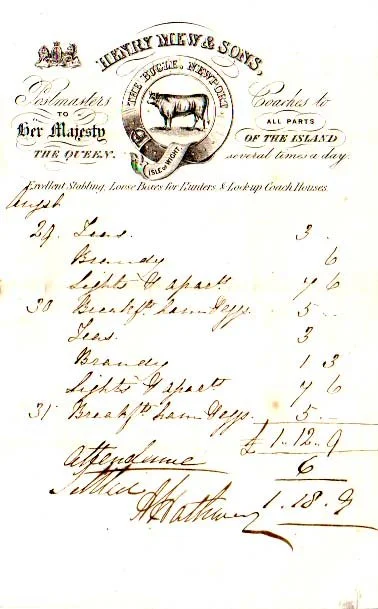 HENRY MEW & SONS,
THE BUGLE, NEWPORT,
ISLE OF WIGHT
Postmasters
TO
Her Majesty
THE QUEEN.
Coaches to
ALL PARTS
OF THE ISLAND
several times a day.
Excellent Stabling, Loose Boxes for Hunters & Lock-up Coach Houses.
Augst
29. Teas. 3 -
Brandy 6
Lights & apartts 7 6
30 Breakfts ham & eggs. 5 -
Teas. 3
Brandy 1 3
Lights & apartts 7 6
31 Breakfts ham & eggs. 5 -
£ 1 .. 12 .. 9
Attendance 6
Settled 1 . 18 . 9